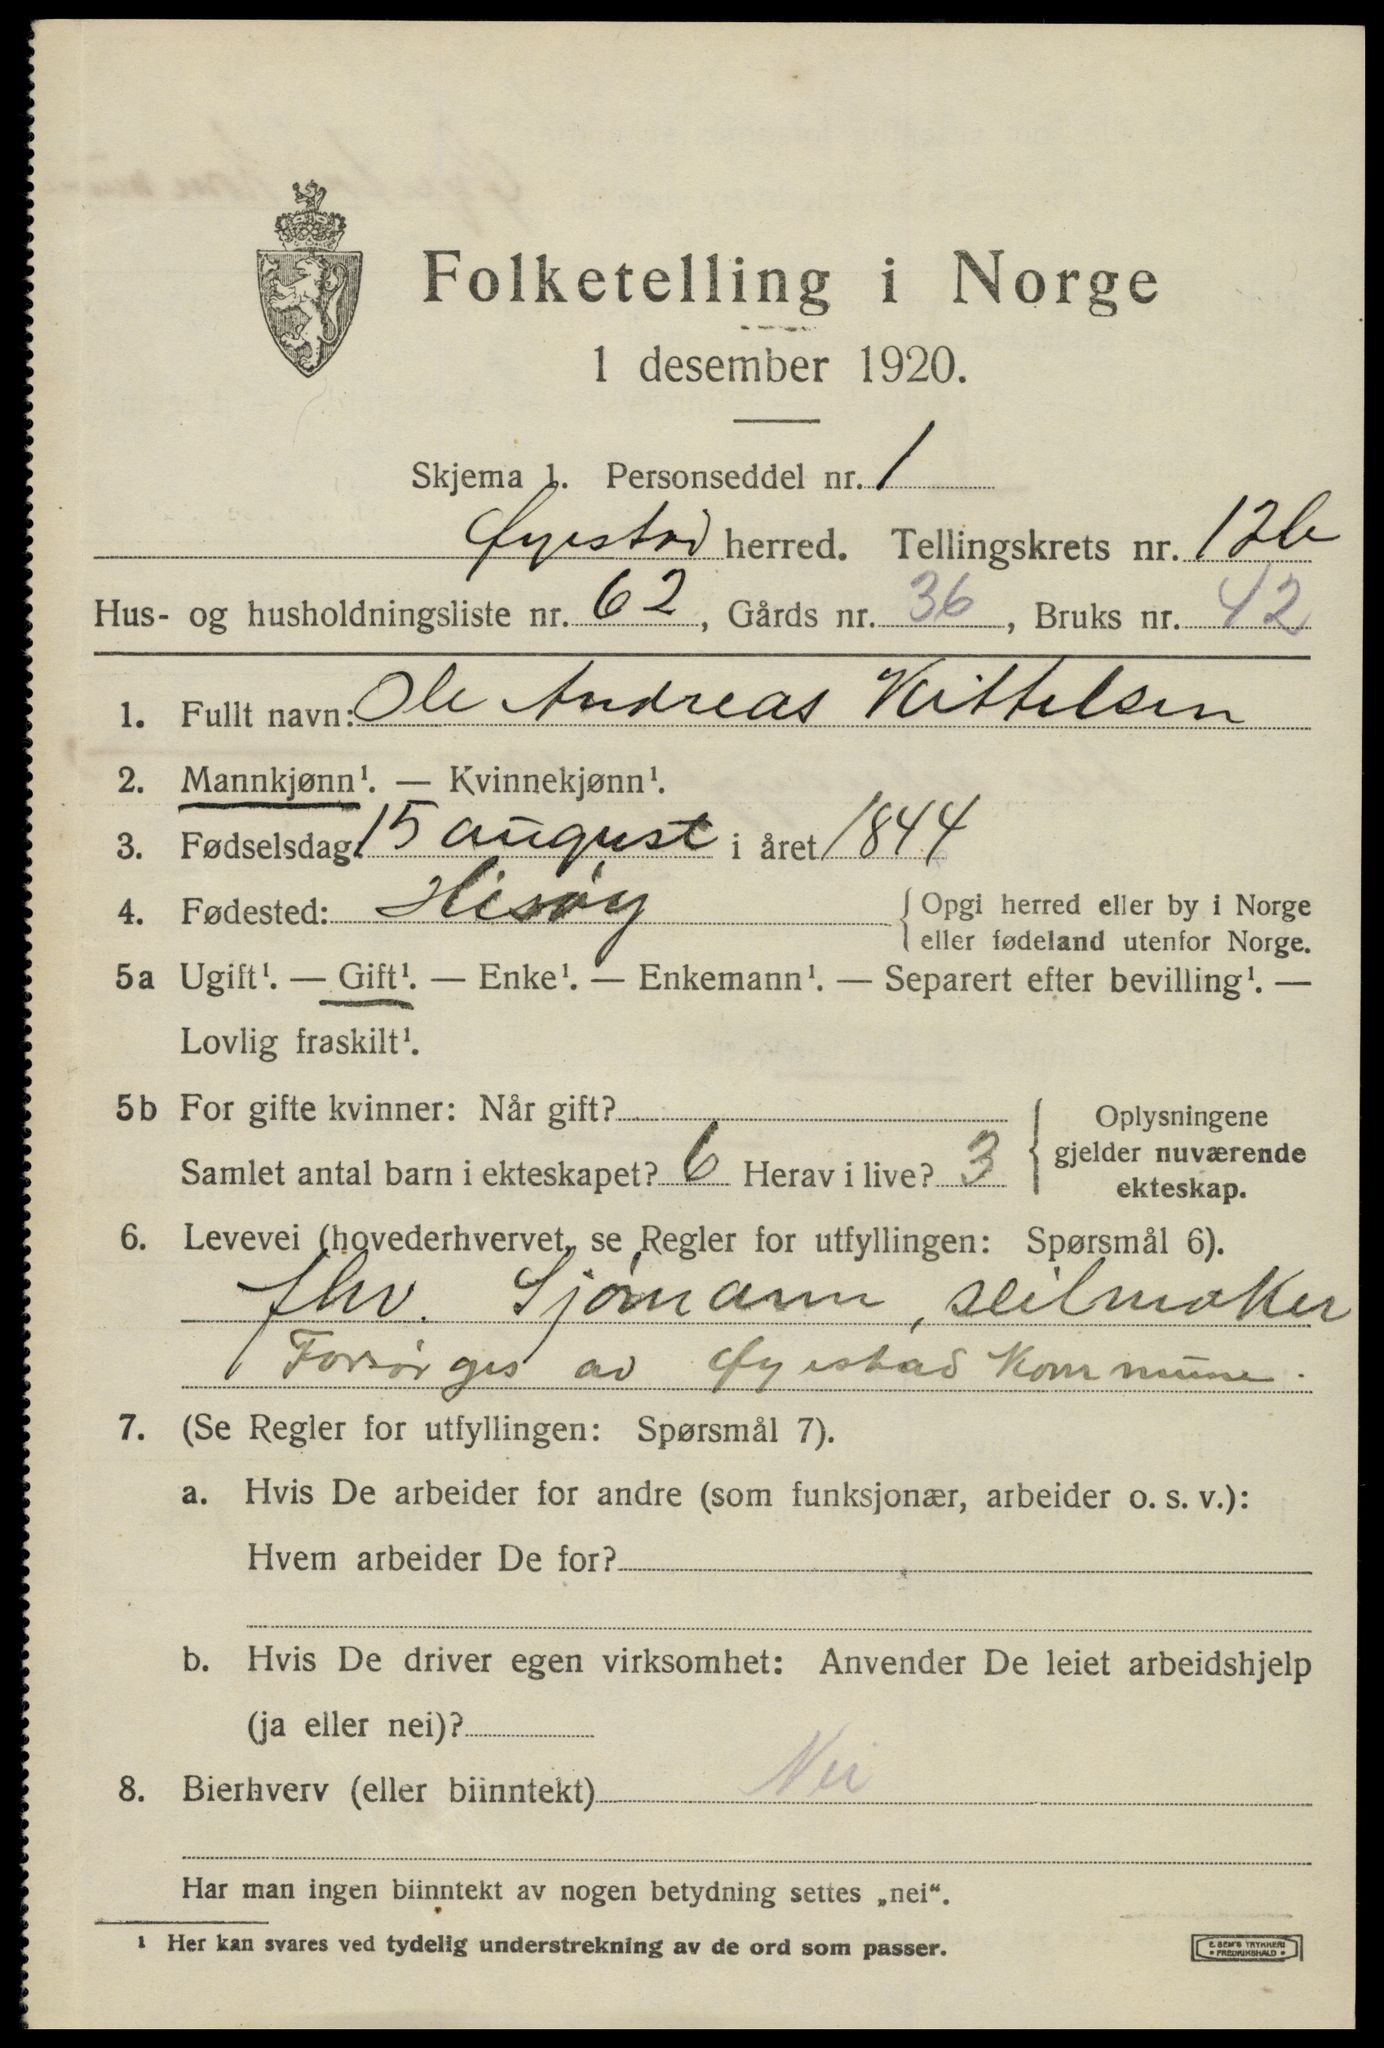 Folketelling i Norge
1 desember 1920.
Skjema 1. Personseddel nr. 1
Øyestad herred. Tellingskrets nr. 12b
Hus- og husholdningsliste nr. 62, Gårds nr. 36, Bruks nr. 42
1. Fullt navn: Ole Andreas Kittelsen
2. Mannkjønn¹. — Kvinnekjønn¹.
3. Fødselsdag 15 august i året 1844
4. Fødested: Hisøy { Opgi herred eller by i Norge
eller fødeland utenfor Norge.
5a Ugift¹. — Gift¹. — Enke¹. — Enkemann¹. — Separert efter bevilling¹. —
Lovlig fraskilt¹.
5b For gifte kvinner: Når gift?
Samlet antal barn i ekteskapet? 6 Herav i live? 3
{ Oplysningene
gjelder nuværende
ekteskap.
6. Levevei (hovederhvervet, se Regler for utfyllingen: Spørsmål 6).
fhv. Sjømann, seilmaker
Forsørges av Øyestad kommune.
7. (Se Regler for utfyllingen: Spørsmål 7).
a. Hvis De arbeider for andre (som funksjonær, arbeider o. s. v.):
Hvem arbeider De for?
b. Hvis De driver egen virksomhet: Anvender De leiet arbeidshjelp
(ja eller nei)?
8. Bierhverv (eller biinntekt) Nei
Har man ingen biinntekt av nogen betydning settes „nei“.
¹ Her kan svares ved tydelig understrekning av de ord som passer.
E. SEM'S TRYKKERI
* FREDRIKSHALD *